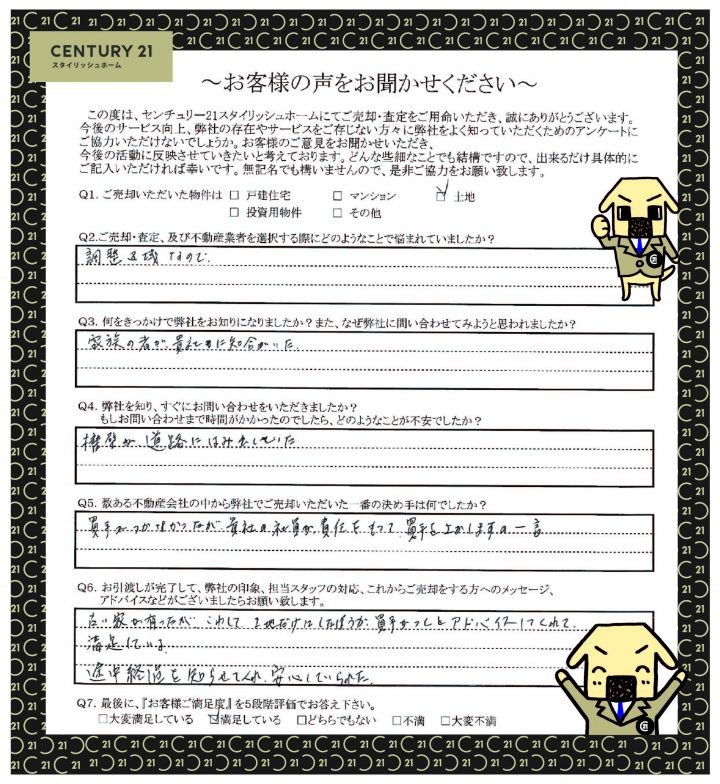 CENTURY 21
スタイリッシュホーム
～お客様の声をお聞かせください～
この度は、センチュリー21スタイリッシュホームにてご売却・査定をご用命いただき、誠にありがとうございます。
今後のサービス向上、弊社の存在やサービスをご存じない方々に弊社をよく知っていただくためのアンケートに
ご協力いただけないでしょうか。お客様のご意見をお聞かせいただき、
今後の活動に反映させていきたいと考えております。どんな些細なことでも結構ですので、出来るだけ具体的に
ご記入いただければ幸いです。無記名でも構いませんので、是非ご協力をお願い致します。
Q1. ご売却いただいた物件は □ 戸建住宅 □ マンション ☑ 土地
□ 投資用物件 □ その他
Q2.ご売却・査定、及び不動産業者を選択する際にどのようなことで悩まれていましたか？
調整区域なので
Q3. 何をきっかけで弊社をお知りになりましたか？また、なぜ弊社に問い合わせてみようと思われましたか？
家族の者が貴社に知合がいた
Q4. 弊社を知り、すぐにお問い合わせをいただきましたか？
もしお問い合わせまで時間がかかったのでしたら、どのようなことが不安でしたか？
擁壁が道路にはみ出していた
Q5. 数ある不動産会社の中から弊社でご売却いただいた一番の決め手は何でしたか？
買手がつかなかったが 貴社の社員が責任をもって 買手を上がしますの一言
Q6. お引渡しが完了して、弊社の印象、担当スタッフの対応、これからご売却をする方へのメッセージ、
アドバイスなどがございましたらお願い致します。
古い家が有ったが こわして 土地だけにしたほうが 買手がつくとアドバイスしてくれて
満足している
途中経過を知らせてくれ 安心していられた
Q7. 最後に、『お客様ご満足度』を5段階評価でお答え下さい。
□大変満足している ☑満足している □どちらでもない □不満 □大変不満